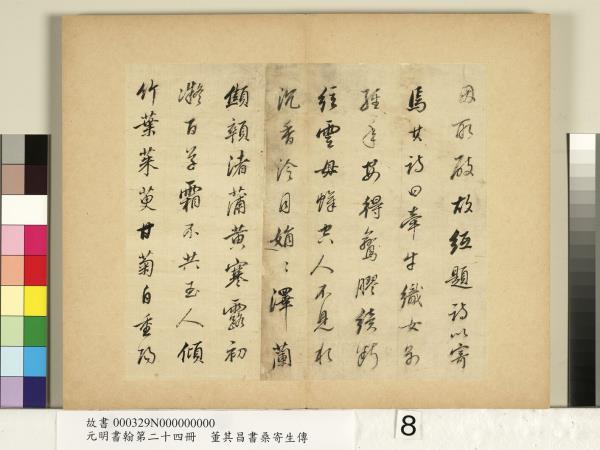 因取破故紙題詩以寄
焉其詩曰牽牛織女別
經年安得鸞膠續斷
絃雲母幃空人不見水
沉香冷月娟〻澤蘭
顦顇渚蒲黃寒露初
凝百草霜不共玉人傾
竹葉茱萸甘菊自重陽
故書 000329N000000000
元明書翰第二十四冊 董其昌書桑寄生傳
8